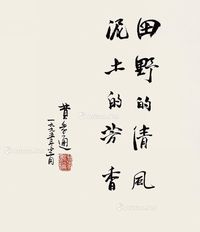 田野的清风
泥土的芳香
费孝通
一九九五年十二月